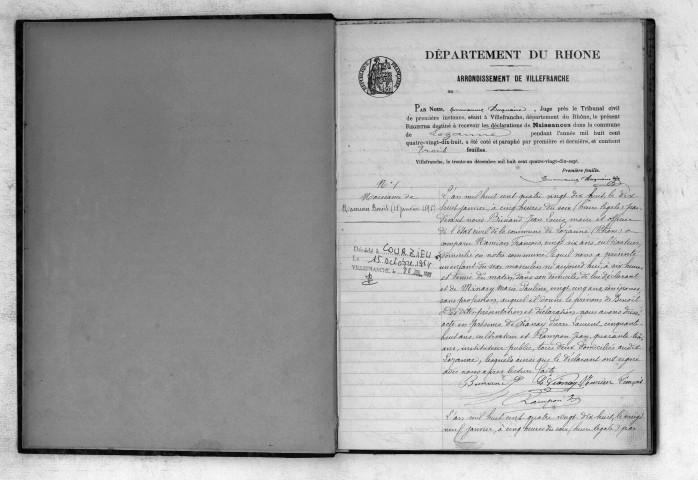 DÉPARTEMENT DU RHONE
ARRONDISSEMENT DE VILLEFRANCHE
RÉPUBLIQUE FRANÇAISE
PAR NOUS, , Juge près le Tribunal civil
de première instance, séant à Villefranche, département du Rhône, le présent
REGISTRE destiné à recevoir les déclarations de Naissances dans la commune
de Lozanne pendant l'année mil huit cent
quatre-vingt-dix-huit, a été coté et paraphé par première et dernière, et contient
feuilles.
Villefranche, le trente-un décembre mil huit cent quatre-vingt-dix-sept.
Première feuille.
N° 1
Naissance de
Benoît (18 janvier 1898)
Décédé à COURZIEU
Le 15 Octobre 1964
VILLEFRANCHE, le
L'an mil huit cent quatre vingt dix huit, le dix
huit janvier, à cinq heures du soir (heure légale) par
devant nous Jean Louis, maire et officier
de l'état civil de la commune de Lozanne (Rhône) a
comparu François, vingt six ans, cultivateur,
domicilié en notre commune, lequel nous a présenté
un enfant du sexe masculin né aujourd'hui, à
et demie du matin, dans son domicile, de lui déclarant
et de Marie Pauline, vingt cinq ans, son épouse,
sans profession, auquel il donne le prénom de Benoît
présentation et déclaration nous avons dressé
acte en présence de Pierre Laurent, cinquante
huit ans, cultivateur et Rampon Jean, quarante
ans, instituteur public, tous deux domiciliés audit
Lozanne, lesquels ainsi que le déclarant ont signé
avec nous après lecture faite
Rampon
L'an mil huit cent quatre vingt dix huit, le
neuf janvier, à cinq heures du soir (heure légale) par